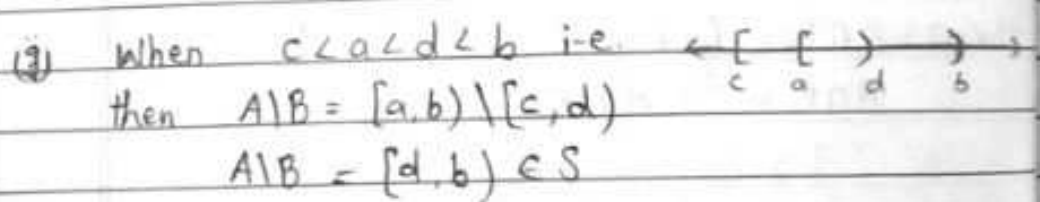 (2) When c<a<d<b i-e. [ [ ) )
c a d b
then A\B = [a,b) \ [c,d)
A\B = [d,b) ∈ S